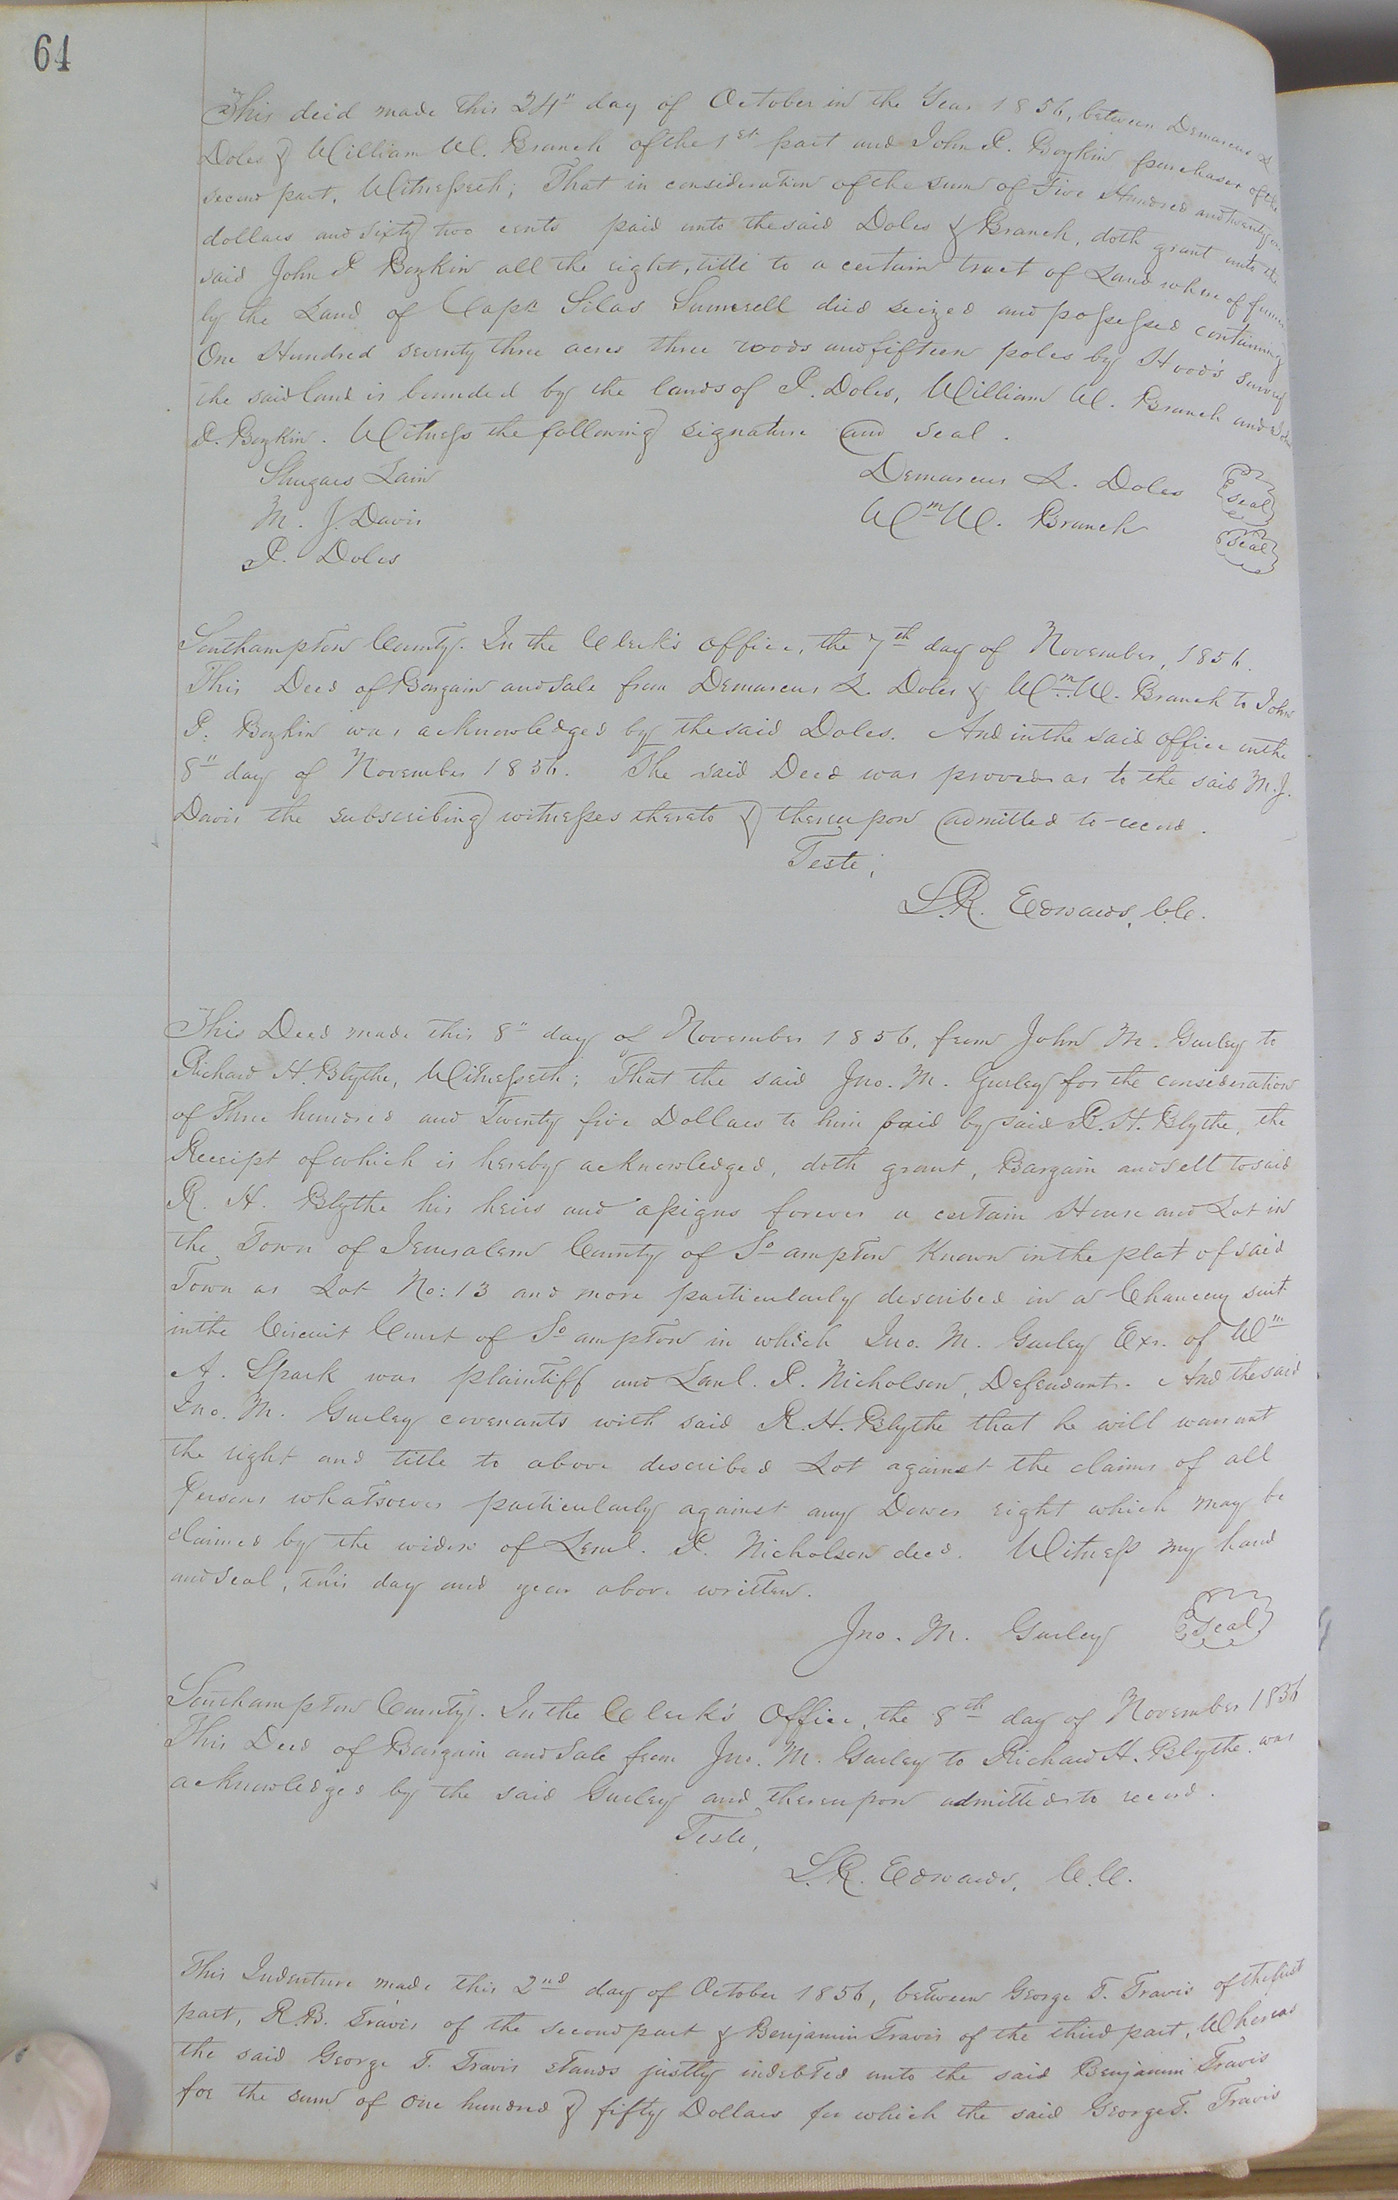 64
This deed made this 24" day of October in the Year 1856, between Demarcus L.
Doles & William W. Branch of the 1st part and John P. Boykin purchaser of the
second part, Witnesseth; That in consideration of the sum of Five Hundred and twenty one
dollars and sixty two cents paid unto the said Doles & Branch, doth grant unto the
said John P Boykin all the right, title to a certain tract of Land where of
by the Land of Capt Silas Sumerell died seized and possessed containing
One Hundred seventy three acres three roods and fifteen poles by Hood's survey
the said land is bounded by the lands of P. Doles, William W. Branch and John
P. Boykin. Witness the following signature and seal.
Shugars Lain Demarcus L. Doles seal
M. J. Davis Wm W. Branch seal
P. Doles
Southampton County. In the Clerk's Office, the 7th day of November, 1856.
This Deed of Bargain and Sale from Demarcus L. Doles & Wm W. Branch to John
P. Boykin was acknowledged by the said Doles. And in the said office on the
8" day of November 1856. The said Deed was proved as to the said M. J.
Davis the subscribing witnesses thereto & thereupon admitted to record.
Teste;
L.R. Edwards, C.C.
This Deed made this 8" day of November 1856, from John M. Gurley to
Richard H. Blythe, Witnesseth; That the said Jno. M. Gurley for the consideration
of Three hundred and Twenty five Dollars to him paid by said R. H. Blythe, the
Receipt of which is hereby acknowledged, doth grant, Bargain and sell to said
R. H. Blythe his heirs and assigns forever a certain House and Lot in
the Town of Jerusalem County of So ampton Known in the plat of said
Town as Lot No: 13 and more particularly described in a Chancery suit
in the Circuit Court of So ampton in which Jno. M. Gurley Exr. of Wm
A. Spark was plaintiff and Leml. P. Nicholson, Defendant. And the said
Jno. M. Gurley covenants with said R. H. Blythe that he will warrant
the right and title to above described Lot against the claims of all
Persons whatsoever particularly against any Dower right which may be
claimed by the widow of Leml. P. Nicholson decd. Witness my hand
and seal, this day and year above written.
Jno. M. Gurley seal
Southampton County. In the Clerk's Office, the 8th day of November 1856
This Deed of Bargain and Sale from Jno. M. Gurley to Richard H. Blythe was
acknowledged by the said Gurley and thereupon admitted to record.
Teste,
L.R. Edwards, C.C.
This Indenture made this 2nd day of October 1856, between George T. Travis of the first
part, R. B. Travis of the second part & Benjamin Travis of the third part, Whereas
the said George T. Travis stands justly indebted unto the said Benjamin Travis
for the sum of one hundred & fifty Dollars for which the said George T. Travis